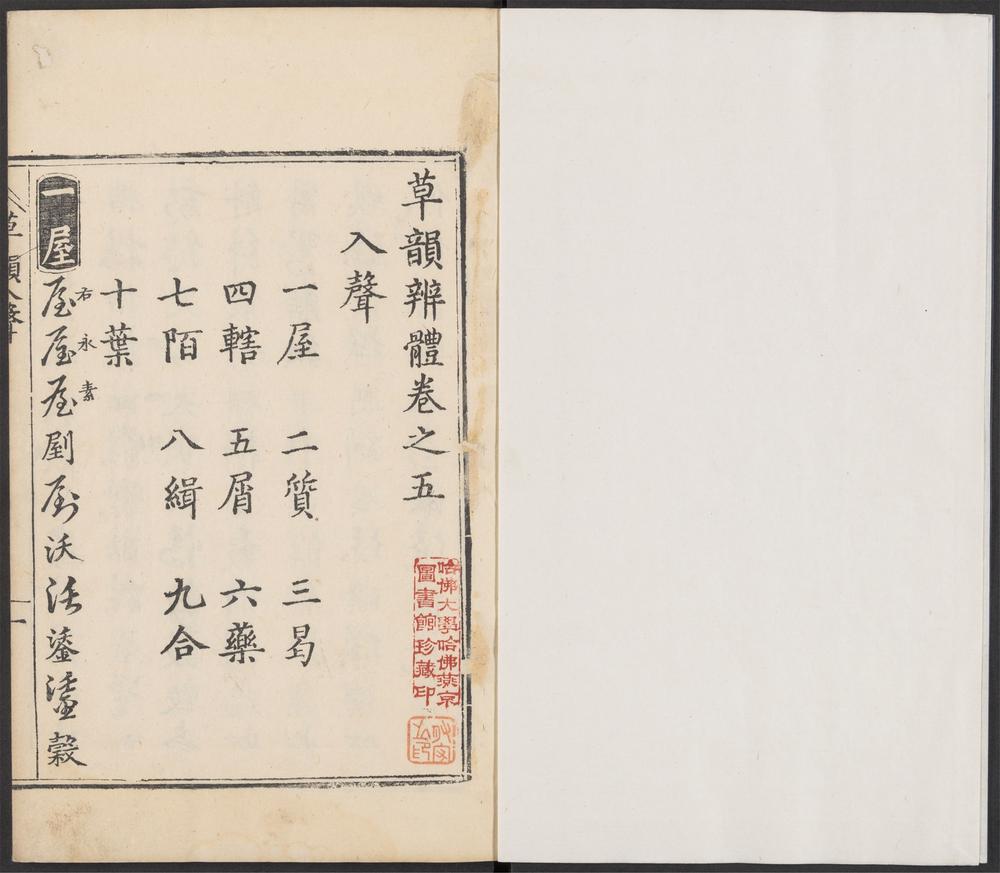 草韻辨體卷之五
入聲
一屋 二質 三曷
四轄 五屑 六藥
七陌 八緝 九合
十葉
一屋
屋屋屋屋剭剭沃沃鋈鋈縠
右永素
哈佛大學哈佛燕京
圖書館珍藏印